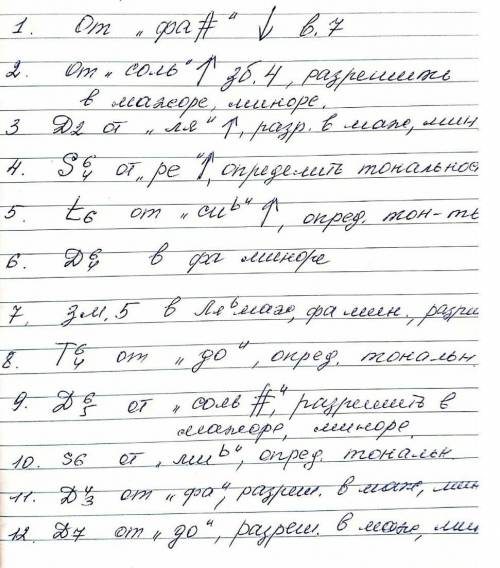 1. От „фа#" ↓ в.7
2. от „соль" ↑ зб.4, разрешить
в мажоре, миноре.
3 Д2 от „ля" ↑, разр. в маж, мин
4. S6/4 от „ре" ↑, определить тональнос
5. t6 от „сиb" ↑, опред. тон-ть
6. Д6/4 в фа миноре
7. зм.5 в Ляb маж, фа мин., разри
8. T6/4 от „до", опред. тональн.
9. Д6/5 от „соль #", разрешить в
мажоре, миноре.
10. S6 от „миb", опред. тональн.
11. Д4/3 от „фа", разреш. в маж, мин
12. Д7 от „до", разреш. в маж, мин